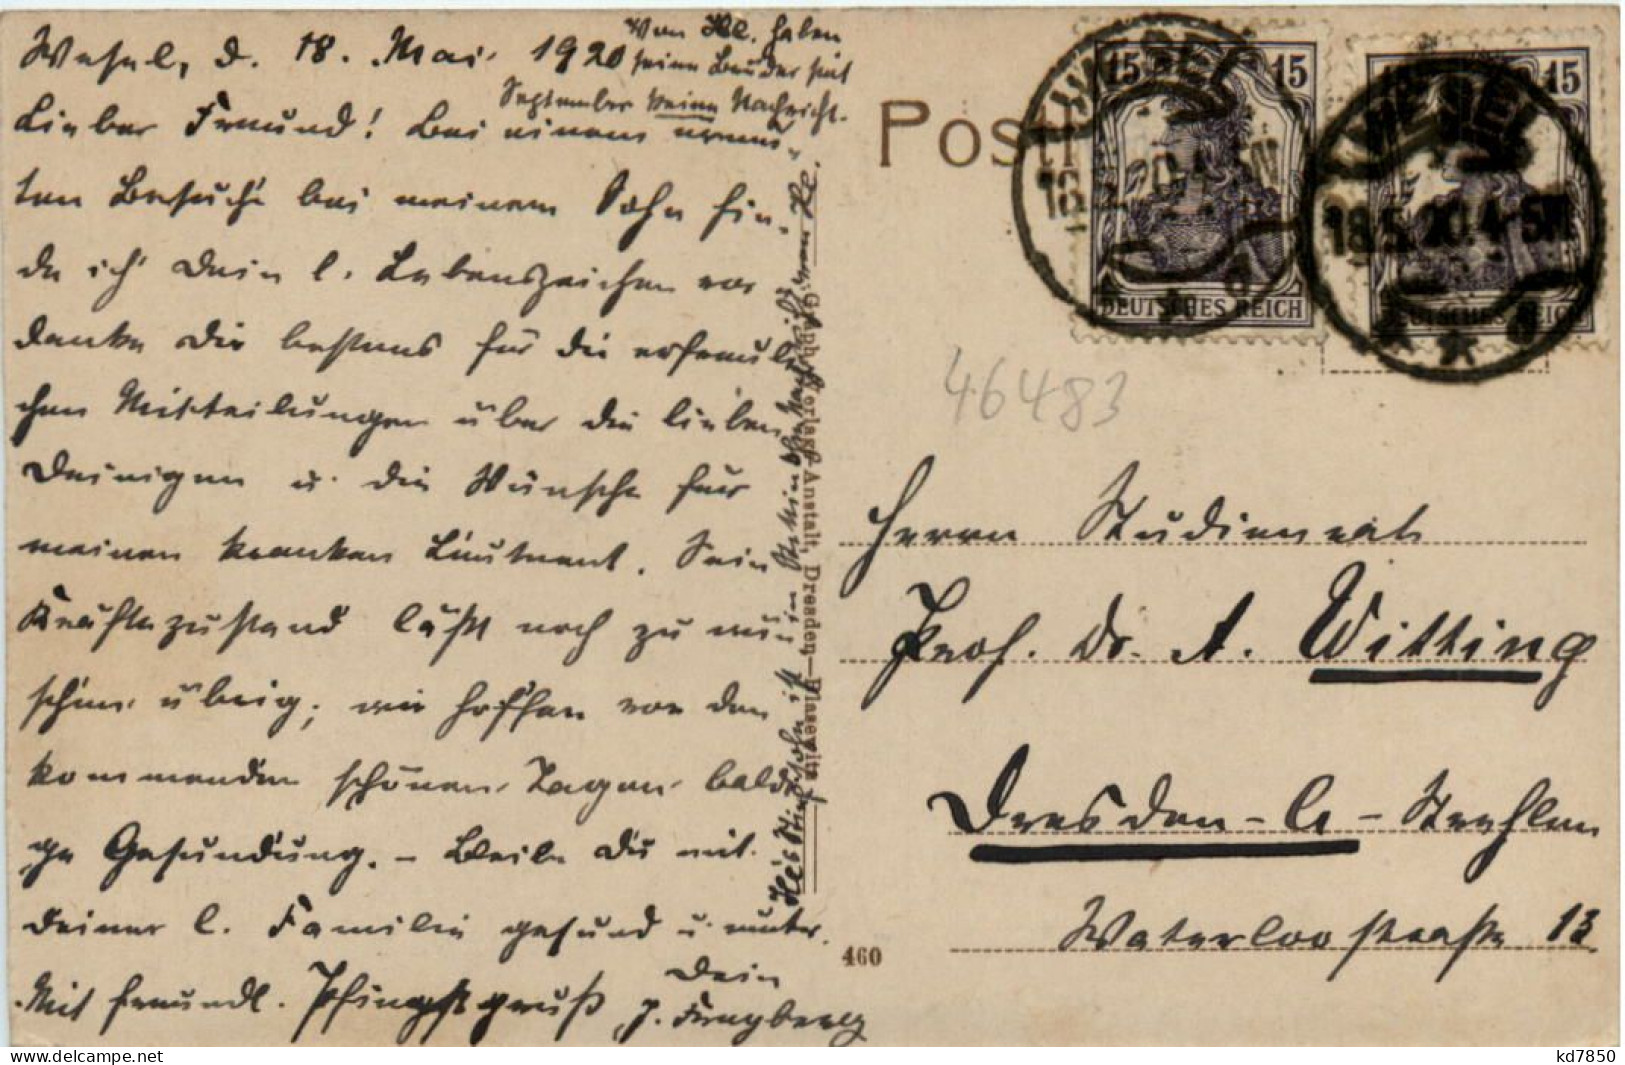 Wesel, d. 18. Mai 1920
Von Hl. haben
seine Bruder seit
September keine Nachricht.
Lieber Freund! Bei einem erneu-
ten Besuche bei meinem Sohn fin-
de ich Dein l. Lebenszeichen vor,
danke Dir bestens für die erfreuli-
chen Mitteilungen über die lieben
Deinigen u. die Wünsche für
meinen kranken Lieutnant. Sein
Kräftezustand läßt noch zu wün-
schen übrig; wir hoffen von den
kommenden schönen Tagen baldi-
ge Genesung. – Bleibe Du mit
Deiner l. Familie gesund u. munter.
Mit freundl. Pfingstgruß
Dein
Hl's Stiefsohn ist in
Graph. Verlags-Anstalt, Dresden—Blasewitz
460
Post
15 15
DEUTSCHES REICH
15 15
DEUTSCHES REICH
WESEL
18.5.20.4-5N
WESEL
18.5.20.4-5N
46483
Herrn Studienrat
Prof. Dr. A. Witting
Dresden-A-Strehlen
Waterloostraße 13
kd7850